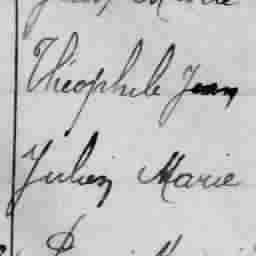 Marie
Théophile Jean
Julien Marie